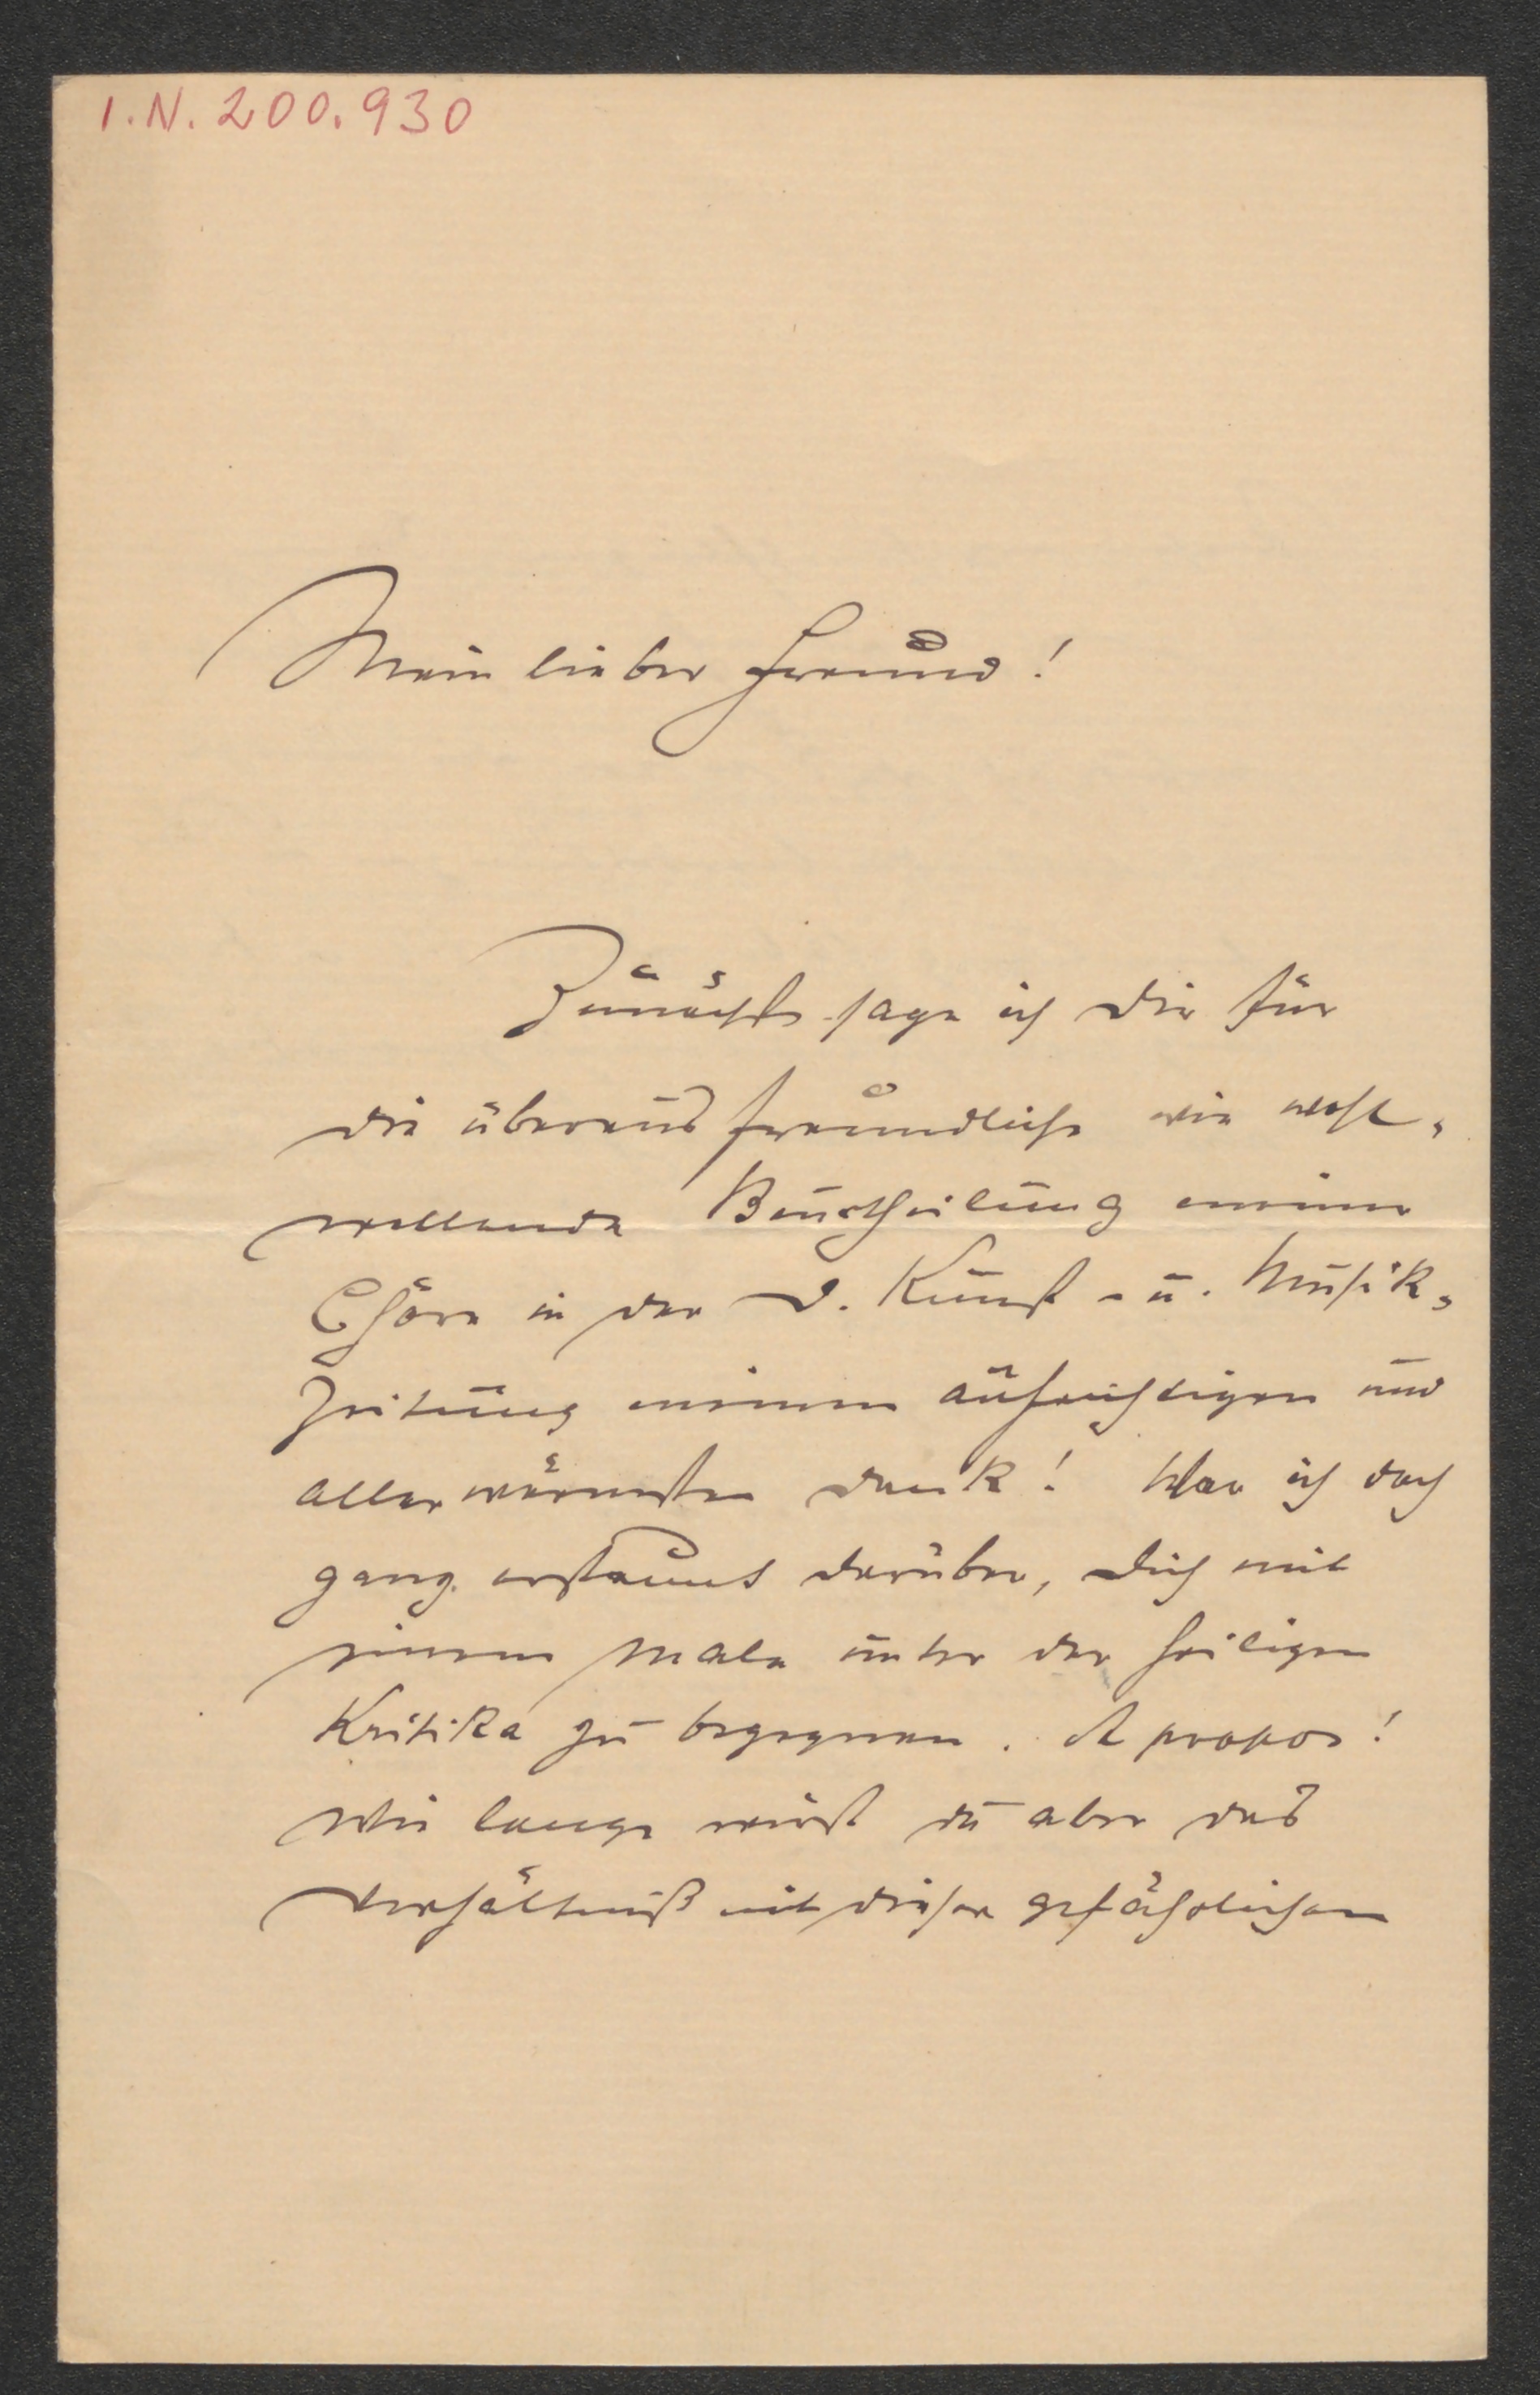 I.N. 200.930
Mein lieber Freund!
Zunächst sage ich Dir für
die überaus freundliche wie wohl-
wollende Beurtheilung meiner
Chöre in der D. Kunst- u. Musik-
Zeitung meinen aufrichtigen und
allerwärmsten Dank! War ich doch
ganz erstaunt darüber, Dich mit
einem Male unter der heiligen
Kritika zu begegnen. A propos!
Wie lange wirst du aber das
Verhältniß mit dieser gefährlichen